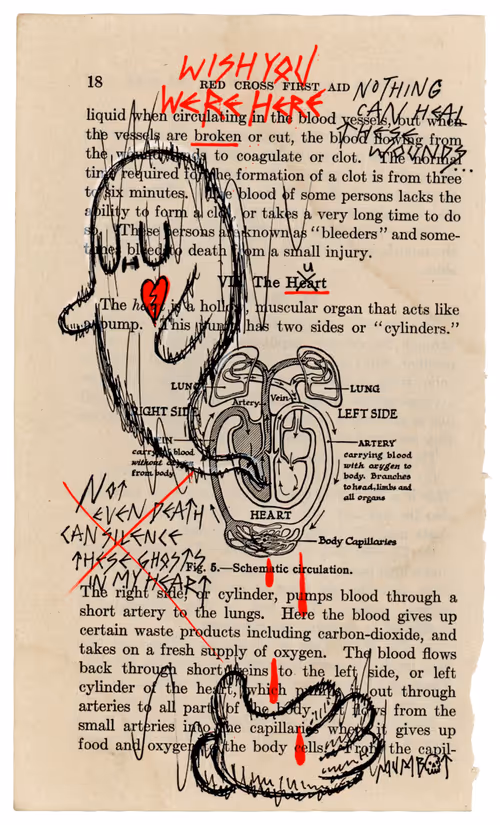 WISH YOU
WERE HERE
NOTHING
CAN HEAL
THESE
WOUNDS...
18
RED CROSS FIRST AID
liquid when circulating in the blood vessels, but when
the vessels are broken or cut, the blood flowing from
the to coagulate or clot. The normal
time required for the formation of a clot is from three
to six minutes. The blood of some persons lacks the
ability to form a clot, or takes a very long time to do
so. These persons are known as "bleeders" and some-
times bleed to death from a small injury.
u
The Heart
The heart is a hollow, muscular organ that acts like
a pump. This pump has two sides or "cylinders."
LUNG
Artery
Vein
LUNG
RIGHT SIDE
LEFT SIDE
VEIN
carrying blood
without
from body
ARTERY
carrying blood
with oxygen to
body. Branches
to head, limbs and
all organs
HEART
Body Capillaries
NOT
EVEN DEATH
CAN SILENCE
THESE GHOSTS
IN MY HEART
Fig. 5.—Schematic circulation.
The right side, or cylinder, pumps blood through a
short artery to the lungs. Here the blood gives up
certain waste products including carbon-dioxide, and
takes on a fresh supply of oxygen. The blood flows
back through short veins to the left side, or left
cylinder of the heart, which pumps out through
arteries to all parts of the body. flows from the
small arteries into the capillaries where it gives up
food and oxygen the body cells. From the capil-